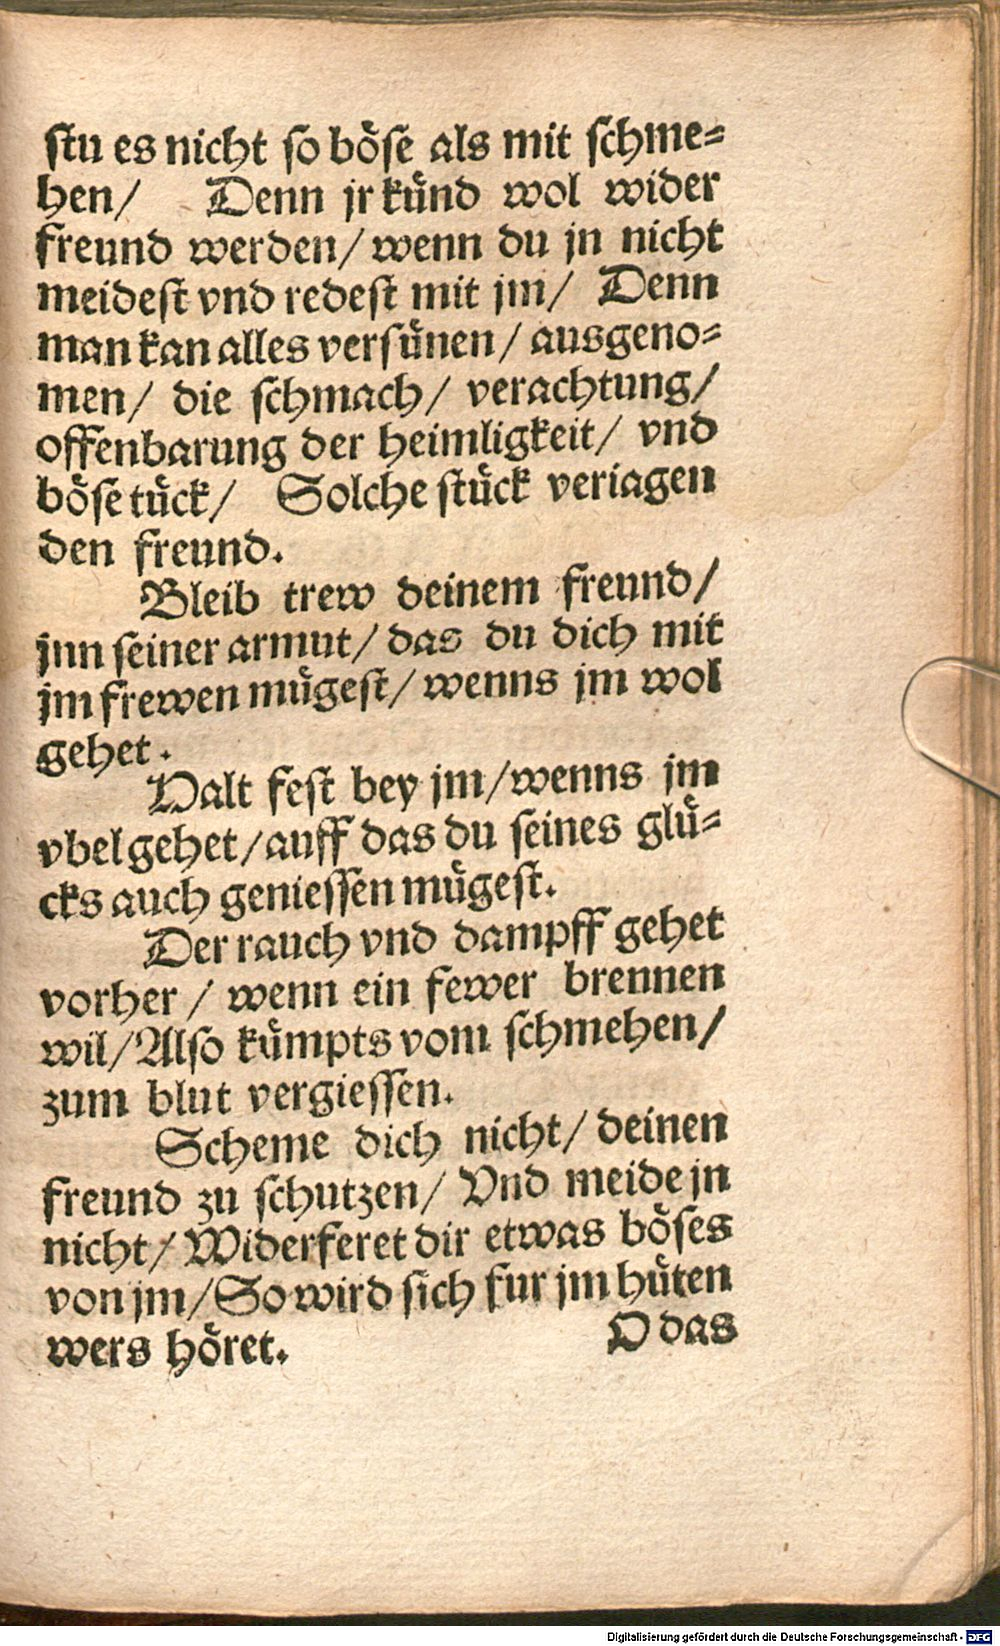 stu es nicht so böse als mit schme⸗
hen/ Denn jr künd wol wider
freund werden/ wenn du jn nicht
meidest vnd redest mit jm/ Denn
man kan alles versünen/ ausgeno⸗
men/ die schmach/ verachtung/
offenbarung der heimligkeit/ vnd
böse tück/ Solche stück veriagen
den freund.
Bleib trew deinem freund/
jnn seiner armut/ das du dich mit
jm frewen mügest/ wenns jm wol
gehet.
Halt fest bey jm/ wenns jm
vbel gehet/ auff das du seines glü⸗
cks auch geniessen mügest.
Der rauch vnd dampff gehet
vorher/ wenn ein fewer brennen
wil/ Also kümpts vom schmehen/
zum blut vergiessen.
Scheme dich nicht/ deinen
freund zu schutzen/ Vnd meide jn
nicht/ Widerferet dir etwas böses
von jm/ So wird sich fur jm hüten
wers höret.
O das
Digitalisierung gefördert durch die Deutsche Forschungsgemeinschaft - DFG